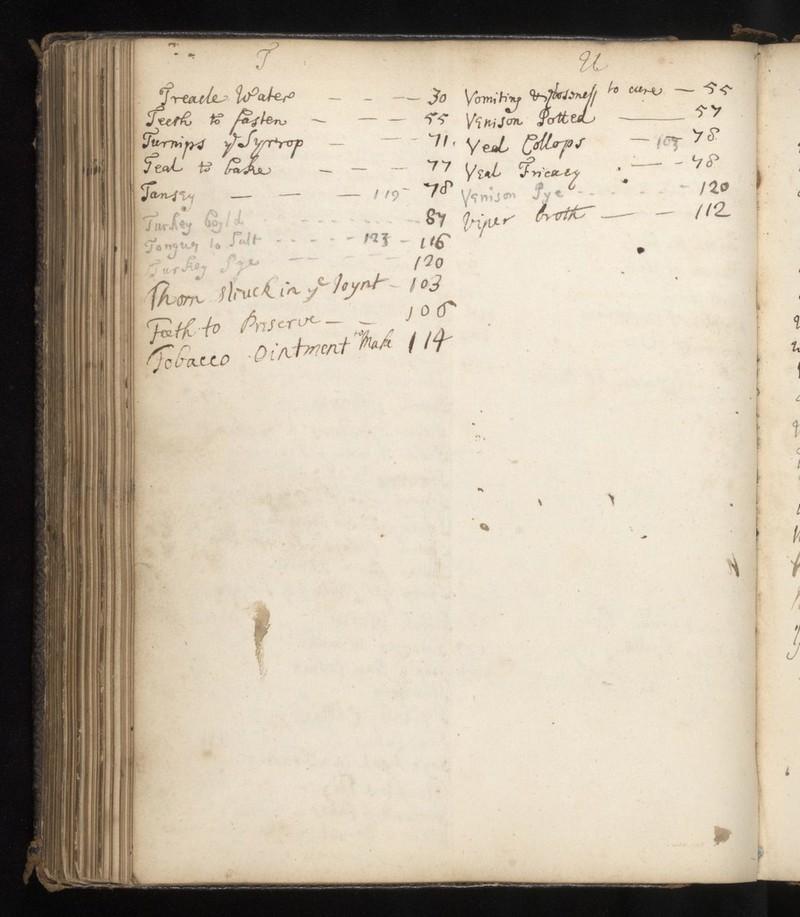 T
Treacle Water — — — 30
Teeth to fasten — — — 55
Turnips ye Syrrop — — 71.
Teal to bake — — — 77
Tansey — — — 119 78
Turkey boyld - - - - - 87
Tongues to Salt - - - - - 123 - 116
Turkey Pye — — 120
Thorn struck in ye Joynt - 103
Teeth to Preserve — — 106
Tobacco Ointment to Make 114
U
Vomiting & to cure — 55
Venison Potted — 57
Veal Collops — 103 78
Veal Fricacy . — - 78
Venison Pye - - - - - - 120
Viper broth — — 112